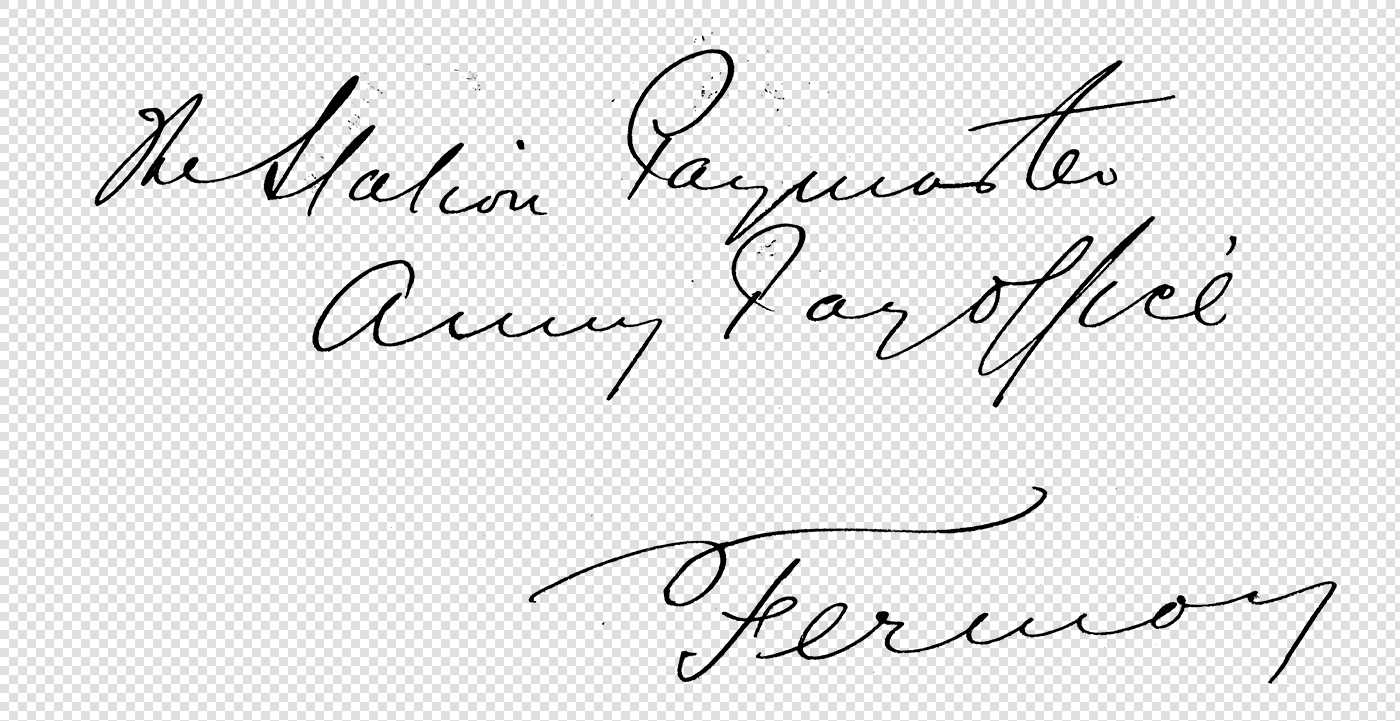 The Station Paymaster
Army Pay Office
Fermoy